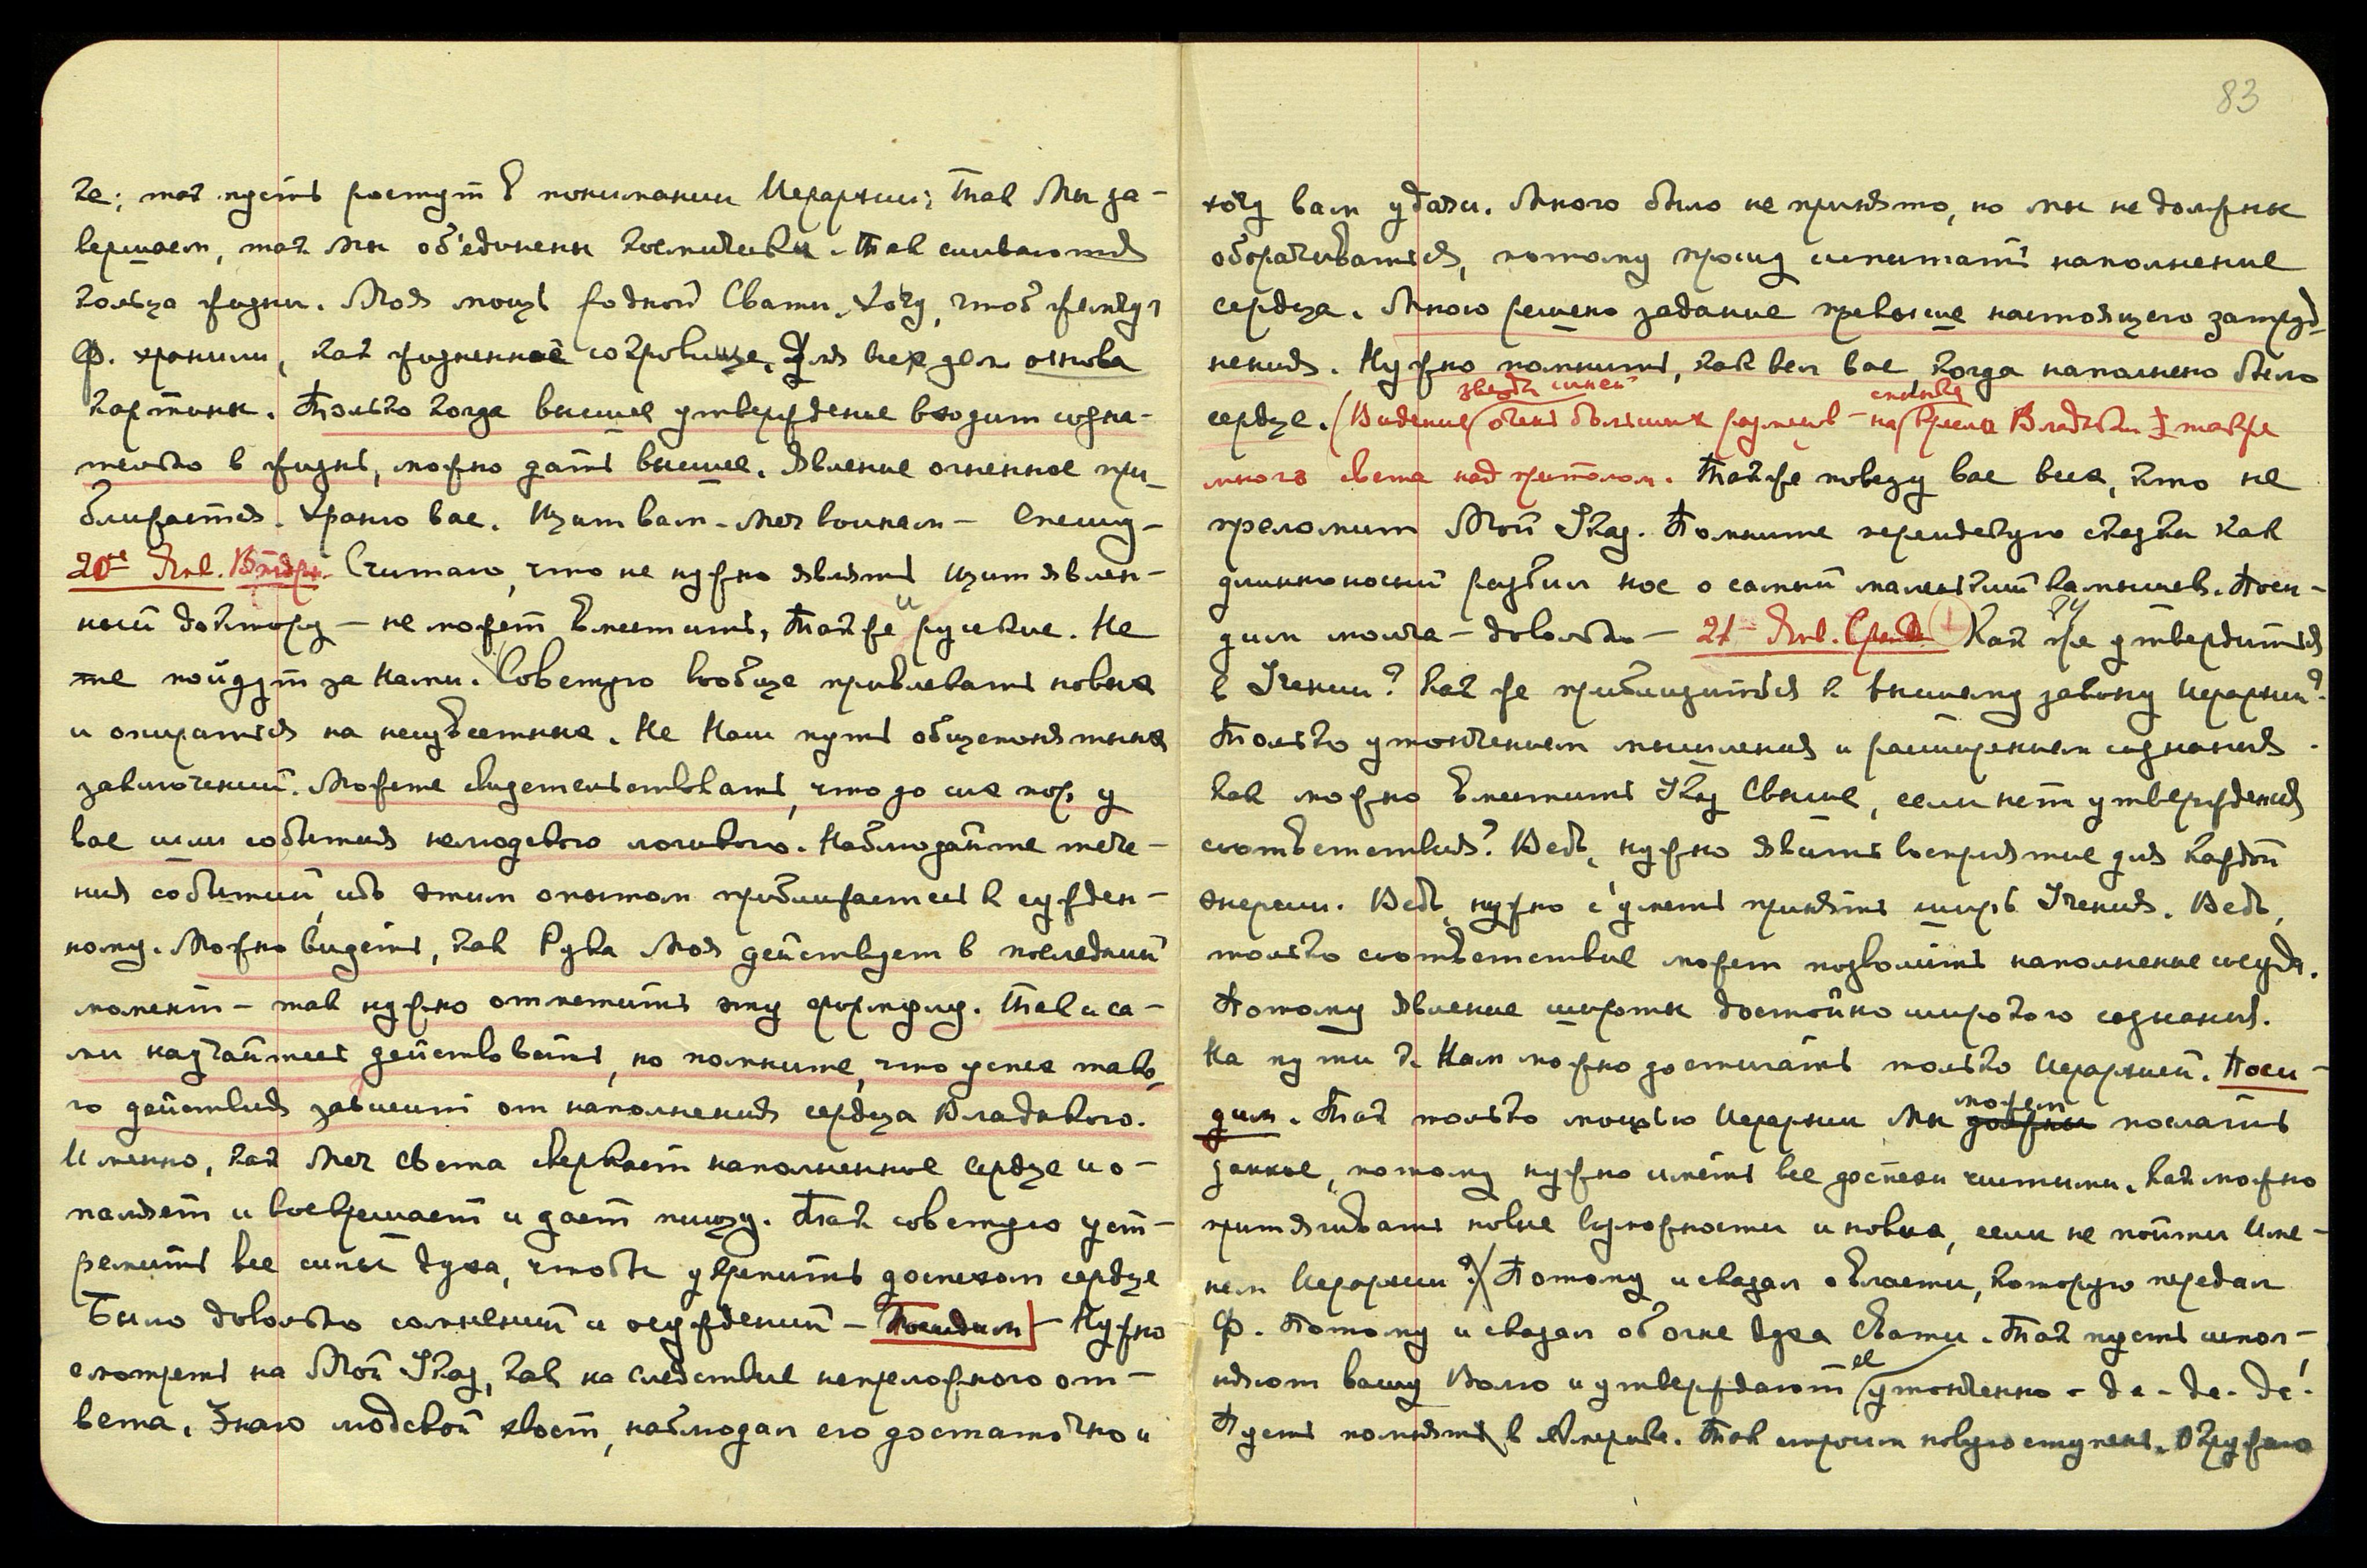 83
ке; так пусть растут в понимании Иерархии; так Мы за-
вершаем, так мы об'единены космически. Так сливаются
кольца жизни. Моя мощь родной Свати. Хочу, чтоб жемчуг
Ф. хранили, как жизненное сокровище. Для всех дел основа
картины. Только когда высшее утверждение входит созна-
тельно в жизнь, можно дать высшее. Явление огненное при-
ближается. Храню вас. Щит вам. Меч воинам – Спешу –
20ое Янв. Вторн. Считаю, что не нужно являть щит явлен-
ный доктору – не может вместить, также и русские. Не
те пойдут за Нами. Советую вообще привлекать новых
и опираться на неизвестных. Не Наш путь общепонятных
заключений. Можете свидетельствовать, что до сих пор у
вас шли события нелюдского логикою. Наблюдайте тече-
ния событий, ибо этим опытом приближаетесь к сужден-
ному. Можно видеть, как Рука Моя действует в последний
момент – так нужно отметить эту формулу. Так и са-
ми научайтесь действовать, но помните, что успех тако-
го действия зависит от наполнения сердца Владыкою.
Именно, как меч света сверкает наполненное сердце и о-
паляет и воскрешает и дает пищу. Так советую уст-
ремить все силы духа, чтобы укрепить доспехом сердце
Было довольно сомнений и осуждений – Посидим – Нужно
смотреть на Мой Указ, как на следствие непреложного от-
вета. Знаю людской хвост, наблюдал его достаточно и
хочу вам удачи. Много было не принято, но мы не должны
оборачиваться, потому прошу испытать наполнение
сердца. Много решено задание превыше настоящего затруд-
нения. Нужно помнить, как вел вас когда наполнено было
звезды синей спинку
сердце. (Видение очень больших размеров – на кресла Владыки I также
много света над престолом. Также поведу вас всех, кто не
преломит Мой Указ. Помните персидскую сказку как
длинноносый разбил нос о самый маленький камышек. Поси-
дим молча – довольно – 21 Янв. Среда Как же утвердиться
в Учении? Как же приблизиться к высшему закону Иерархии?
Только утончением мышления и расширением сознания.
Как можно вместить Указ Свыше, если нет утверждения
соответствия? Ведь, нужно явить восприятие для каждой
энергии. Ведь, нужно с'уметь принять ширь Учения. Ведь,
только соответствие может позволить наполнение сосуда.
Потому явление широты достойно широкого сознания.
На пути к Нам можно достигать только Иерархией. Поси-
дим. Так только мощью Иерархии Мы можем послать
данное, потому нужно иметь все доспехи чистыми. Как можно
притягивать новые возможности и новых, если не пойти Име-
нем Иерархии? Потому и сказал о власти, которую передал
Ф. Потому и сказал об огне духа Свати. Так пусть испол-
няют вашу Волю и утверждают ее утонченно – да – да – да!
Пусть помнят в Америке. Так строим новую ступень. Окружаю